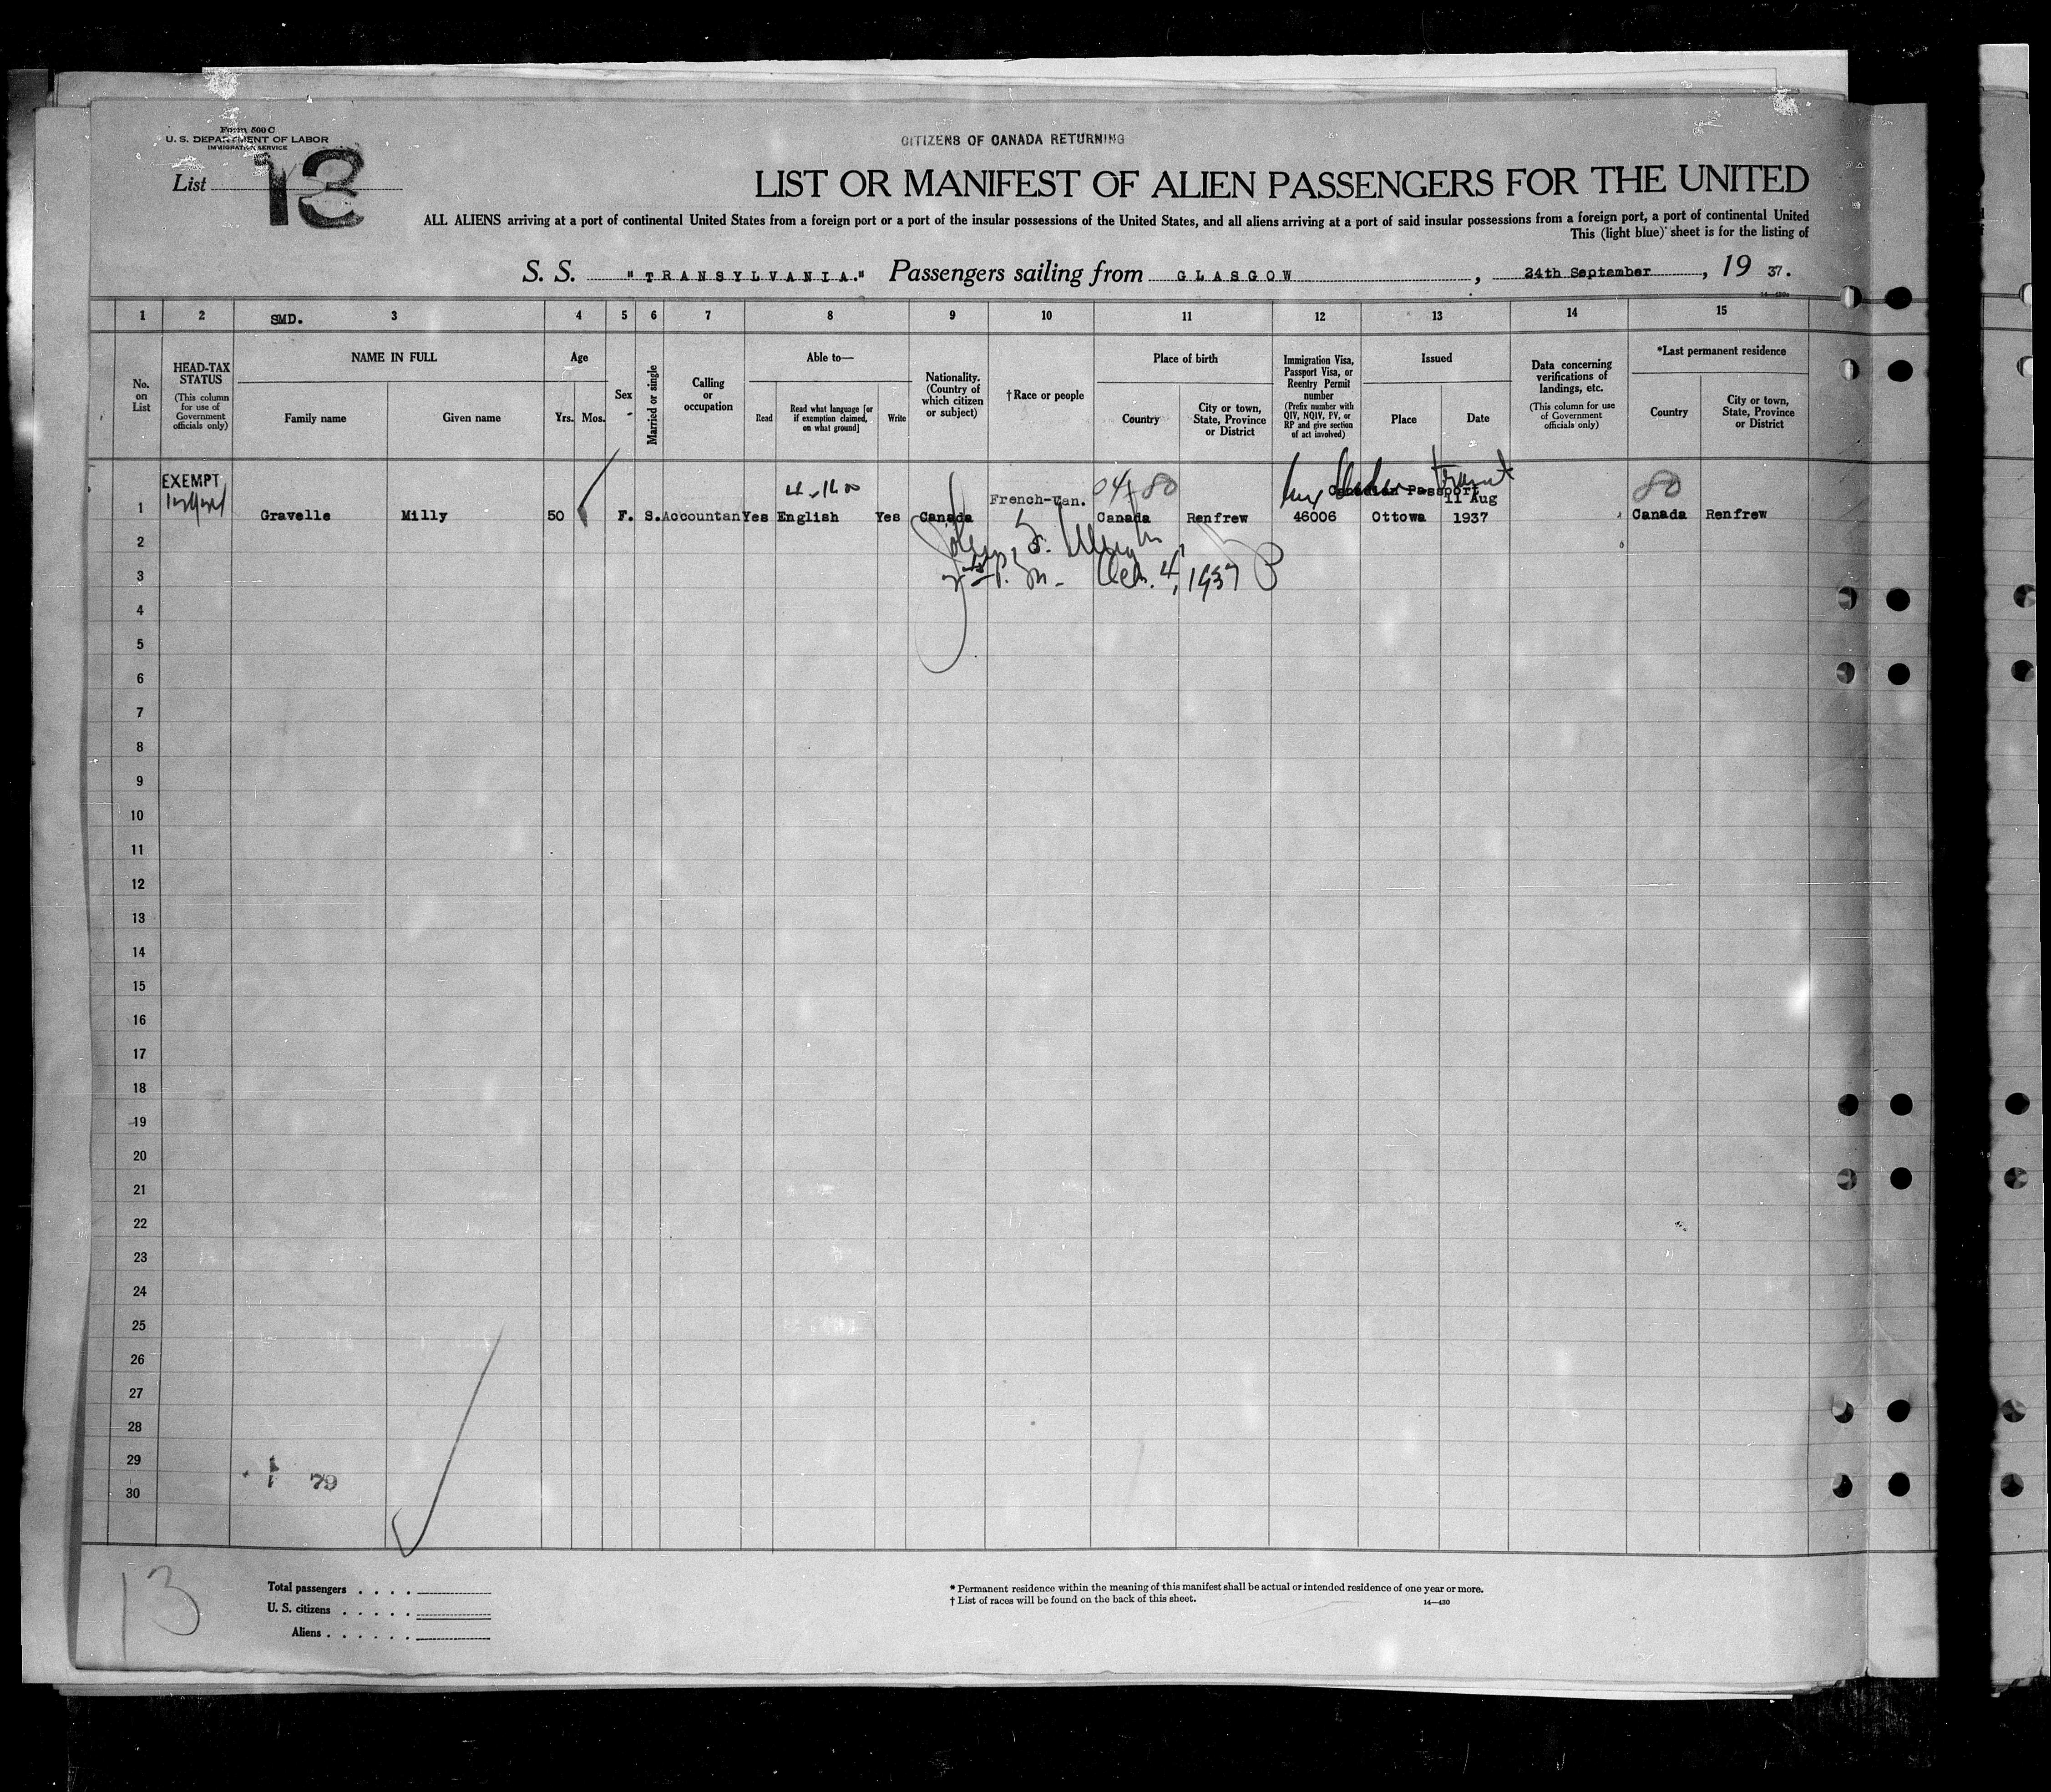 Form 500 C
U. S. DEPARTMENT OF LABOR
IMMIGRATION SERVICE
CITIZENS OF CANADA RETURNING
List 13
LIST OR MANIFEST OF ALIEN PASSENGERS FOR THE UNITED
ALL ALIENS arriving at a port of continental United States from a foreign port or a port of the insular possessions of the United States, and all aliens arriving at a port of said insular possessions from a foreign port, a port of continental United
This (light blue) sheet is for the listing of
S. S. "TRANSYLVANIA." Passengers sailing from GLASGOW, 24th September, 19 37.
1 2 SMD. 3 4 5 6 7 8 9 10 11 12 13 14 15
No. on List
HEAD-TAX STATUS (This column for use of Government officials only)
NAME IN FULL
Family name
Given name
Age
Yrs. Mos.
Sex
Married or single
Calling or occupation
Able to—
Read
Read what language [or if exemption claimed, on what ground]
Write
Nationality. (Country of which citizen or subject)
†Race or people
Place of birth
Country
City or town, State, Province or District
Immigration Visa, Passport Visa, or Reentry Permit number (Prefix number with QIV, NQIV, PV, or RP and give section of act involved)
Issued
Place
Date
Data concerning verifications of landings, etc. (This column for use of Government officials only)
*Last permanent residence
Country
City or town, State, Province or District
EXEMPT
French-Can. 04 80 Canadian Passport Transit 11 Aug 80
1 Gravelle Milly 50 F. S. Accountan Yes English Yes Canada Canada Renfrew 46006 Ottowa 1937 Canada Renfrew
2
3 P. M. Oct. 4, 1937
4
5
6
7
8
9
10
11
12
13
14
15
16
17
18
19
20
21
22
23
24
25
26
27
28
29
1 79
30
13
Total passengers . . . .
U. S. citizens . . . . .
Aliens . . . . . .
* Permanent residence within the meaning of this manifest shall be actual or intended residence of one year or more.
† List of races will be found on the back of this sheet.
14—430